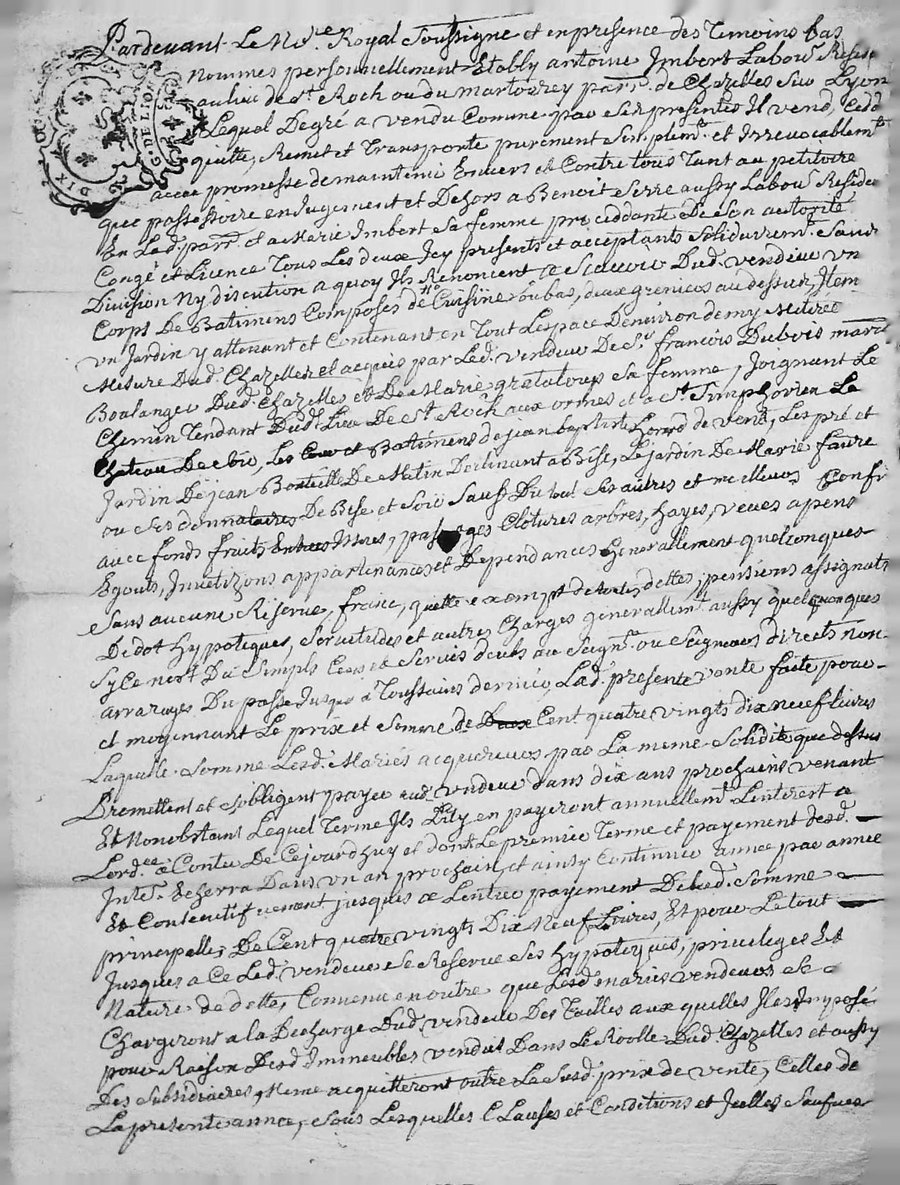 Pardevant Le No.re Royal Soussigne et en presence des Temoins bas
nommes personnellement Etably antoine Imbert Labou.r Reside
au lieu de St. Roch ou du martourey parr. de Chazelles sur Lyon
Lequel De gré a vendu Comme par ses presentes Il vend, Cedde
quitte, Remet et Transporte purement Simplem.t et Irrevocablem.t
avec promesse de maintenir Envers et Contre tous Tant au petitoire
que possessoire en Jugement et Dehors a Benoit Serre aussy Labou.r Residen
En Lad. parr. et a Marie Imbert sa femme proceddante De son autorité
Congé et Licence Tous Les deux Icy presents et acceptants solidairem.t sans
Division Ny discution a quoy Ils Renoncent a Scavoir Dud. vendeur un
Corps De Batimens Composés de Cuisine En bas, deux greniers au dessus, Item
un Jardin y attenant et Contenant en Tout L'espace D'environ demy Meterée
Mesure Dud. Chazelles et acquis par Led. vendeur De Sr. francois Dubois march
Boulanger Dud. Chazelles et De Marie grataloup sa femme, Joignant Le
Chemin Tendant Dud. Lieu De St. Roch aux ormes et a St. Simphorien Le
Chateau De bise, Les Cour et Batimens de jean baptiste de vent, Les pré et
Jardin De jean Bonteille De Matin Declinant a Bise, Le jardin De Marie faure
ou ses donnataires De Bise et soir Sauf Du tout ses autres et meilleurs Confi
avec fonds fruits Entrées Issues, passages Clotures arbres, hayes, veues a pens
Egouts, Invetizons appartenances et Dependances Generallement quelconques
Sans aucune Reserve, franc, quitte exempt de toutes dettes, pensions assignats
De dot hypoteques, servitudes et autres Charges generallem.t aussy quelconques
Sy Ce n'est Du Simple Cens et Servis deubs au Seign.r ou Seigneurs directs non
arrarages Du passé Jusques a Toussains dernier, Lad. presente vente faite pour
et moyennant Le prix et somme de Cent quatre vingts dix neuf Livres
Laquelle Somme Lesd. Mariés acquereurs par La meme Solidité que dessus
Promettent et s'obligent payer aud. vendeur dans dix ans prochains venant
Et Nonobstant Lequel Terme Ils Luy en payeront annuellem.t L'interest a
L'ord.re a Conter De Cejourdhuy et dont Le premier Terme et payement desd.
Inte.t Echerra Dans un an prochain, et ainsy Continuer année par année
Et Consecutifvement jusques a L'entier payement De lad. Somme
principalle De Cent quatre vingts Dix Neuf Livres, Et pour Le tout
Jusques a Ce Led. vendeur se Reserve ses hypoteques, privileges Et
Nature de dette, Convenu en outre que Lesd. mariés vendeurs se
Chargeront a la Decharge Dud. vendeur Des Tailles aux quelles Il est Imposé
pour Raison Desd. Immeubles vendus Dans Le Roolle Dud. Chazelles et aussy
Des Subsidiaires, Meme acquitteront outre Le Susd. prix de vente, Celles de
La presente année, Sous Lesquelles Clauses et Conditions et Icelles Saufves